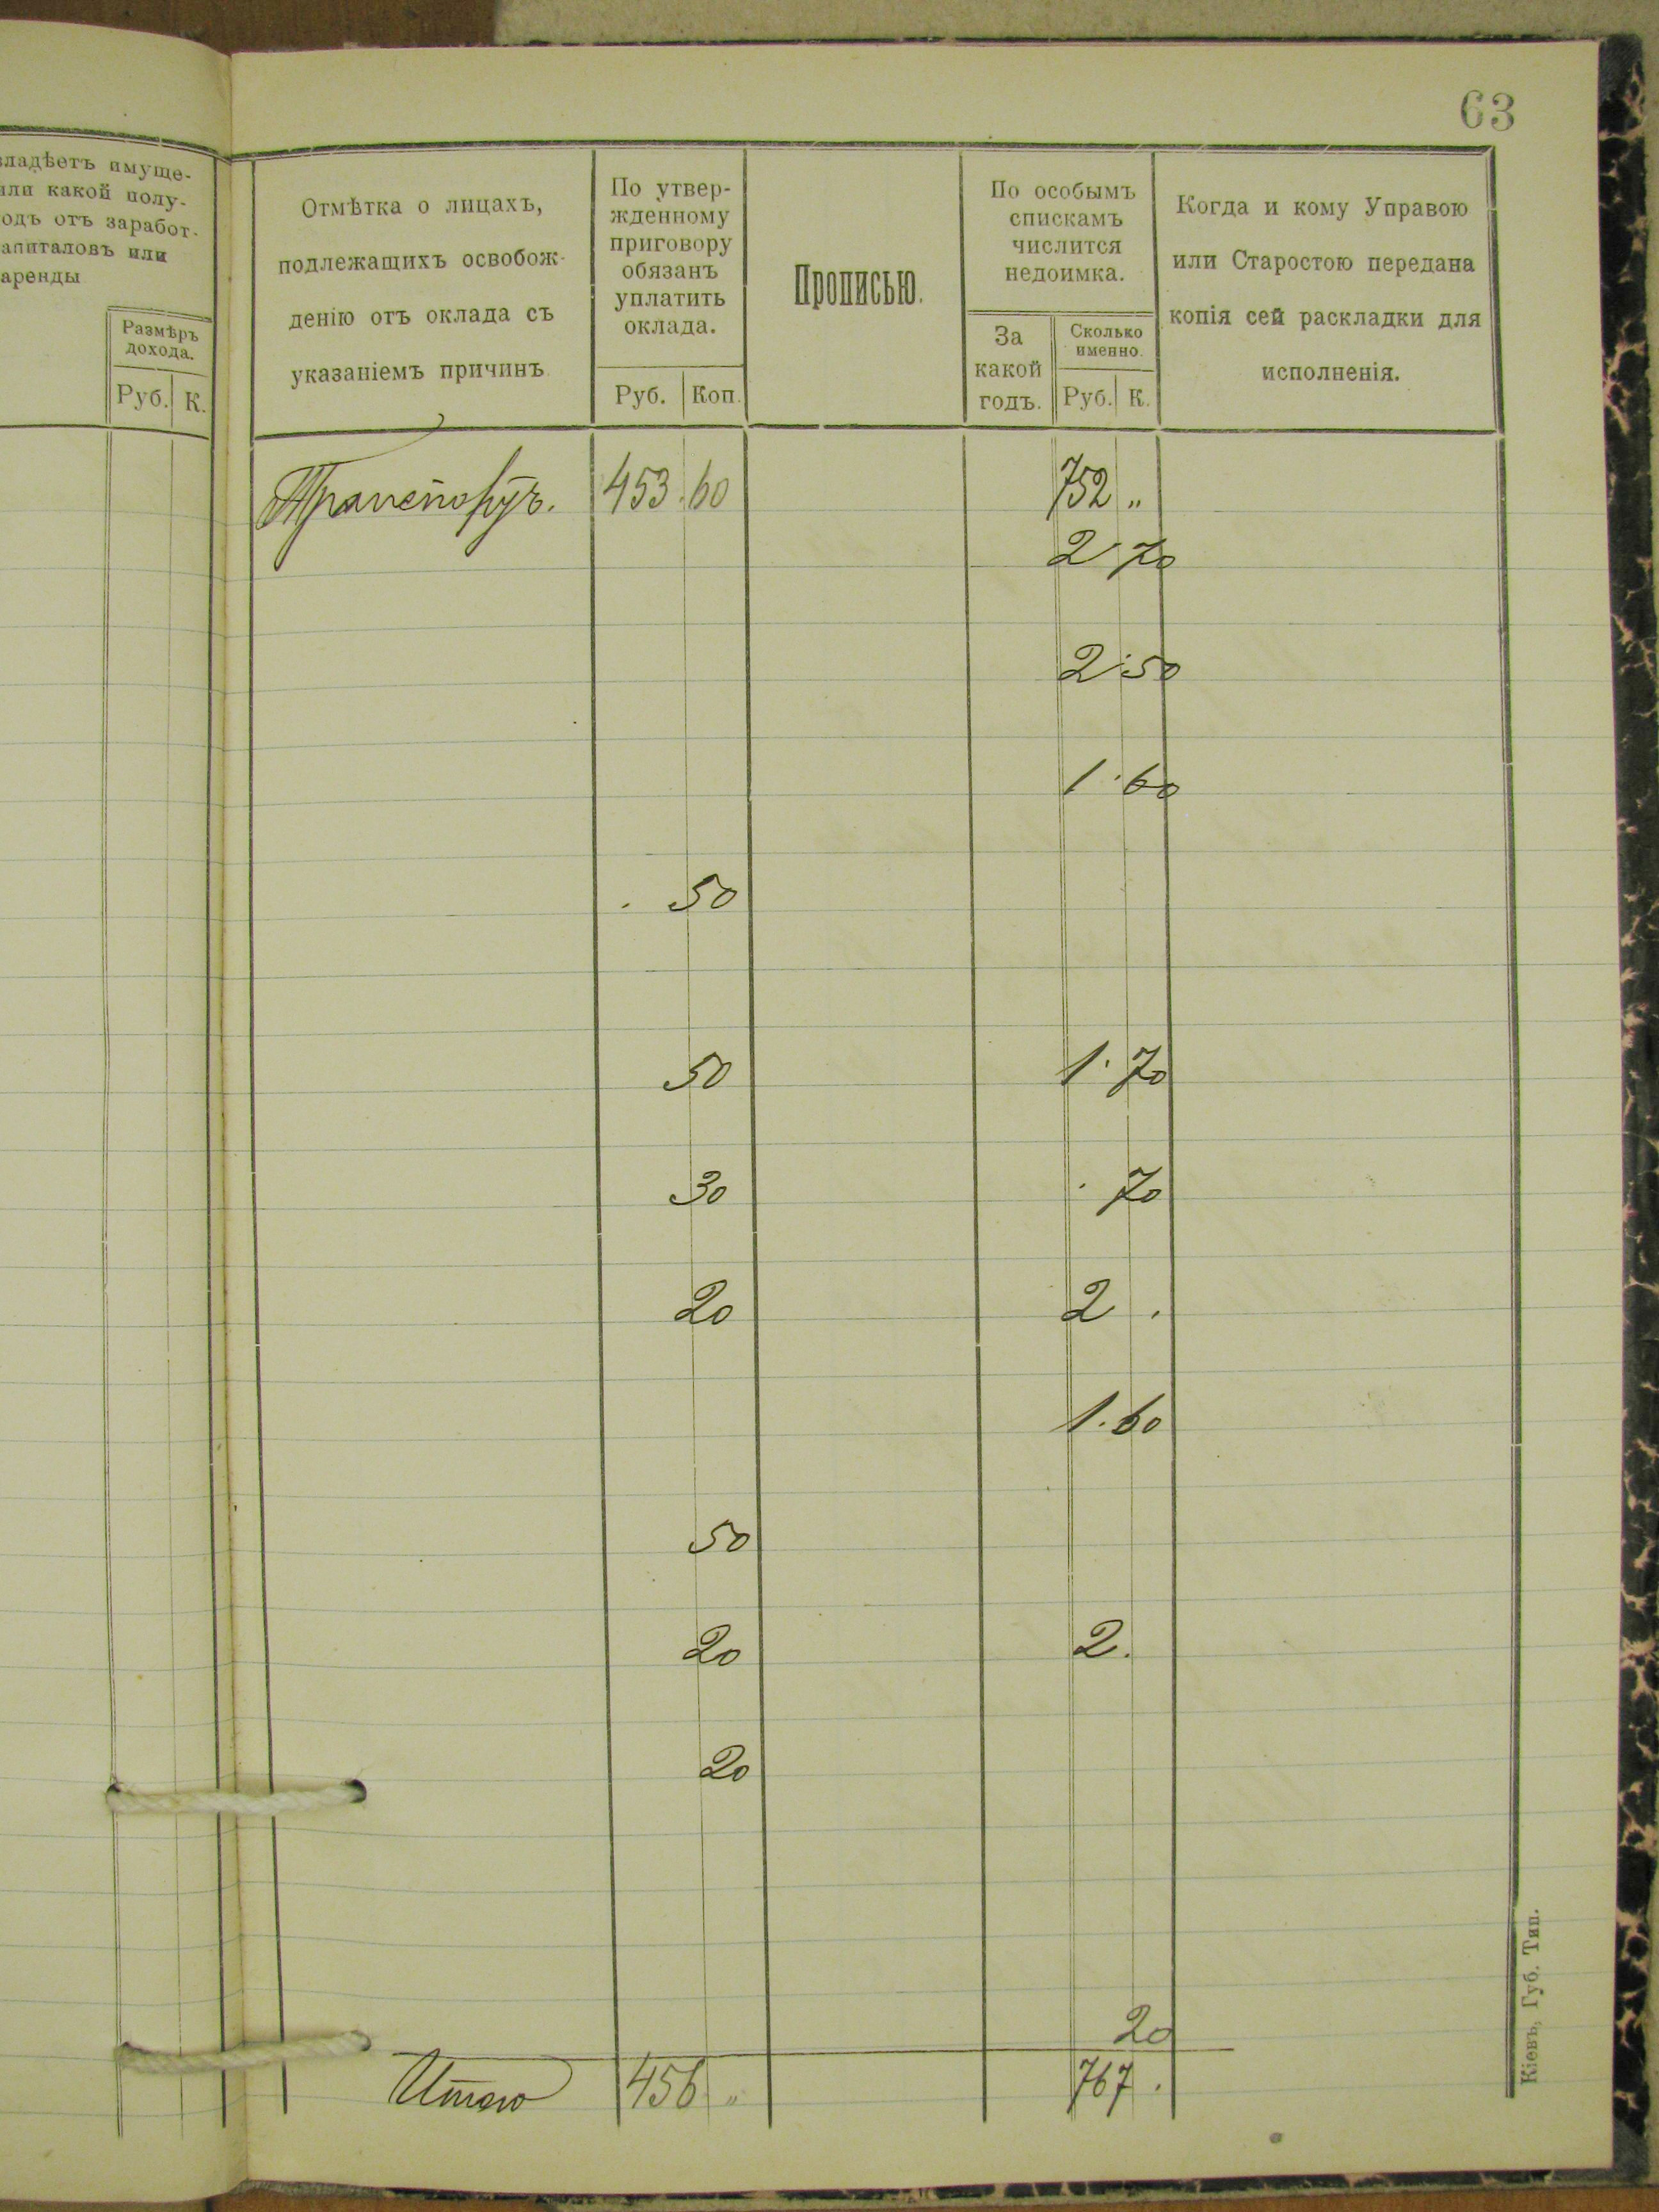 63
владѣетъ имуще-
или какой полу-
одъ отъ заработ-
апиталовъ или
аренды
Размѣръ
дохода.
Руб. К.
Отмѣтка о лицахъ,
подлежащихъ освобож-
денію отъ оклада съ
указаніемъ причинъ
По утвер-
жденному
приговору
обязанъ
уплатить
оклада.
Руб. Коп.
Прописью.
По особымъ
спискамъ
числится
недоимка.
За
какой
годъ.
Сколько
именно.
Руб. К.
Когда и кому Управою
или Старостою передана
копія сей раскладки для
исполненія.
Транспортъ. 453.60 752 „
2 70
2 50
1 60
50
50 1 70
30 70
20 2
1.60
50
20 2.
20
20
Итого 456 „ 767
Кіевъ, Губ. Тип.